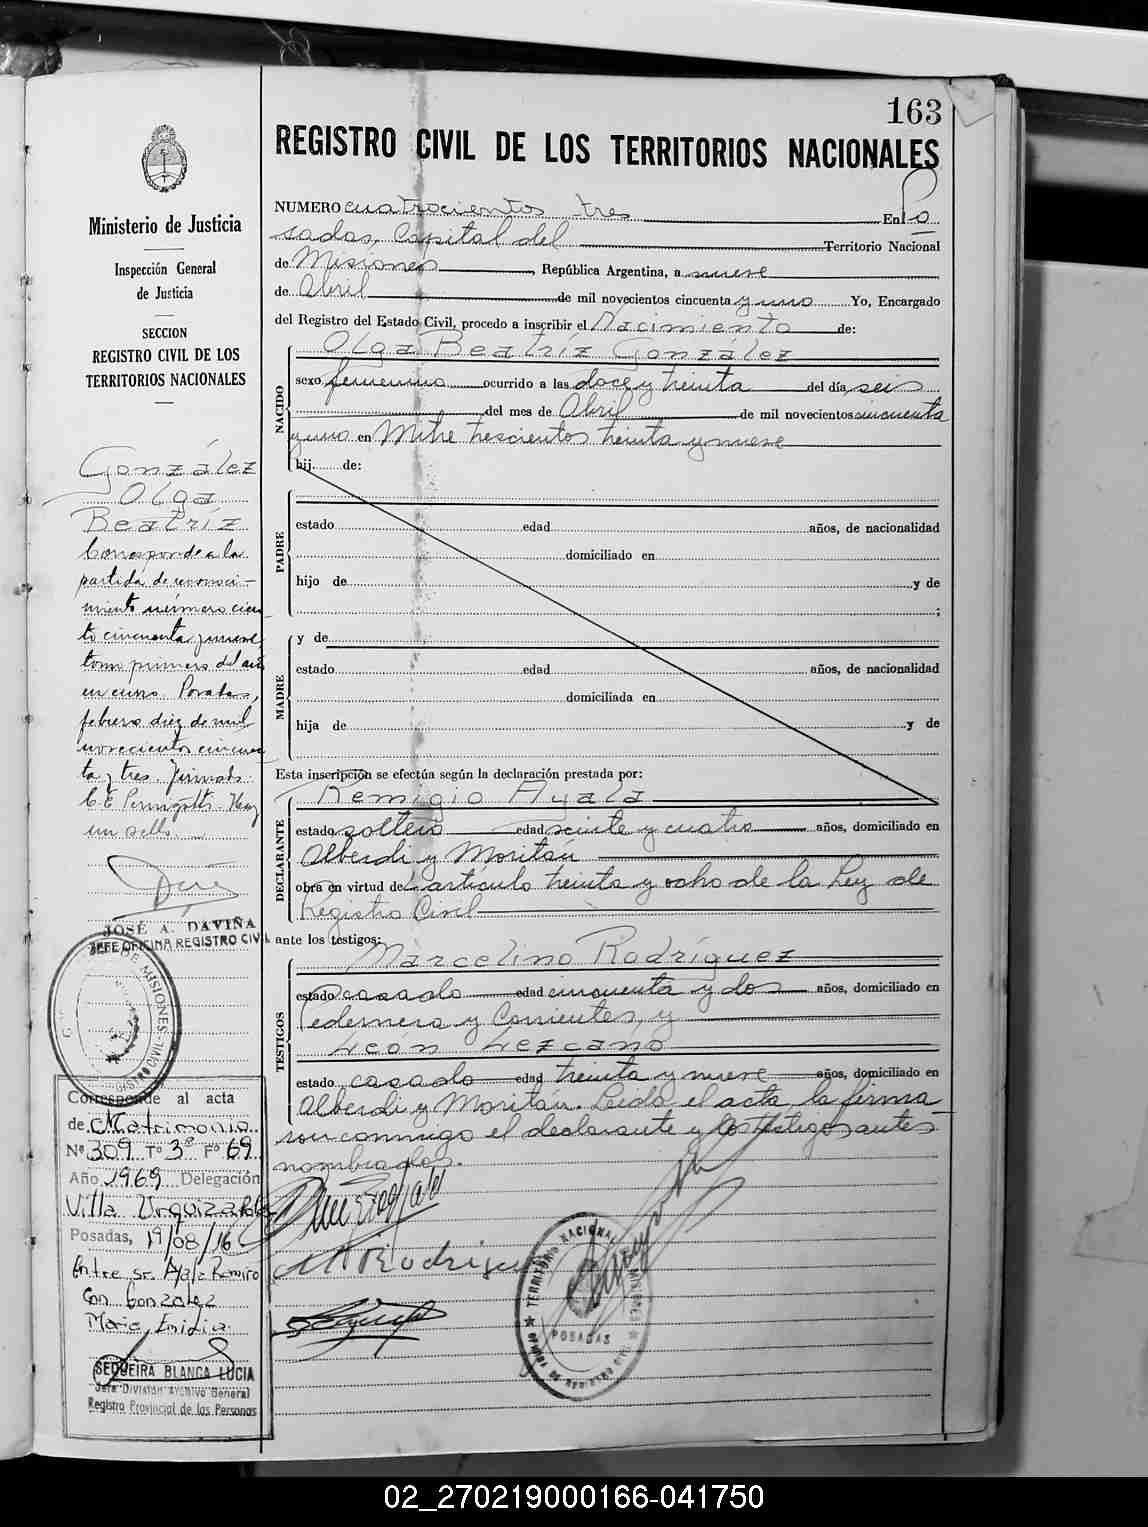 163
REGISTRO CIVIL DE LOS TERRITORIOS NACIONALES
Ministerio de Justicia
Inspección General
de Justicia
SECCION
REGISTRO CIVIL DE LOS
TERRITORIOS NACIONALES
González
Olga
Beatríz
Corresponde a la
partida de reconoci-
miento número cien
to cincuenta y nueve
tomo primero del año
en curso. Posadas,
febrero diez de mil
novecientos cincuen
ta y tres. Firmado:
Hay
un sello
JOSÉ A. DAVIÑA
JEFE OFICINA REGISTRO CIVIL
DE MISIONES
REGISTRO CIVIL
Corresponde al acta
de Matrimonio
Nº 309 Tº 3º Fº 69
Año 1969 Delegación
Villa Urquiza
Posadas, 19/08/16
Entre sr. Ayala Remiro
Con Gonzalez
Maria Emilia
SEQUEIRA BLANCA LUCIA
Jefa DIVISION Archivo General
Registro Provincial de las Personas
NUMERO cuatrocientos tres En Po
sadas, Capital del Territorio Nacional
de Misiones, República Argentina, a nueve
de Abril de mil novecientos cincuenta y uno Yo, Encargado
del Registro del Estado Civil, procedo a inscribir el Nacimiento de:
NACIDO
Olga Beatríz González
sexo femenino ocurrido a las doce y treinta del día seis
del mes de Abril de mil novecientos cincuenta
y uno en Mitre trescientos treinta y nueve
hij de:
PADRE
estado edad años, de nacionalidad
domiciliado en
hijo de y de
;
MADRE
y de
estado edad años, de nacionalidad
domiciliada en
hija de y de
Esta inscripción se efectúa según la declaración prestada por:
DECLARANTE
Remigio Ayala
estado soltero edad veinte y cuatro años, domiciliado en
Alberdi y Moritán
obra en virtud del artículo treinta y ocho de la Ley de
Registro Civil
ante los testigos:
TESTIGOS
Marcelino Rodríguez
estado casado edad cincuenta y dos años, domiciliado en
Pedernera y Corrientes, y
León Lezcano
estado casado edad treinta y nueve años, domiciliado en
Alberdi y Moritán. Leída el acta, la firma
ron conmigo el declarante y los testigos antes
nombrados.
M Rodrigue
TERRITORIO NACIONAL MISIONES
POSADAS
OFICINA DE REGISTRO CIVIL
02_270219000166-041750